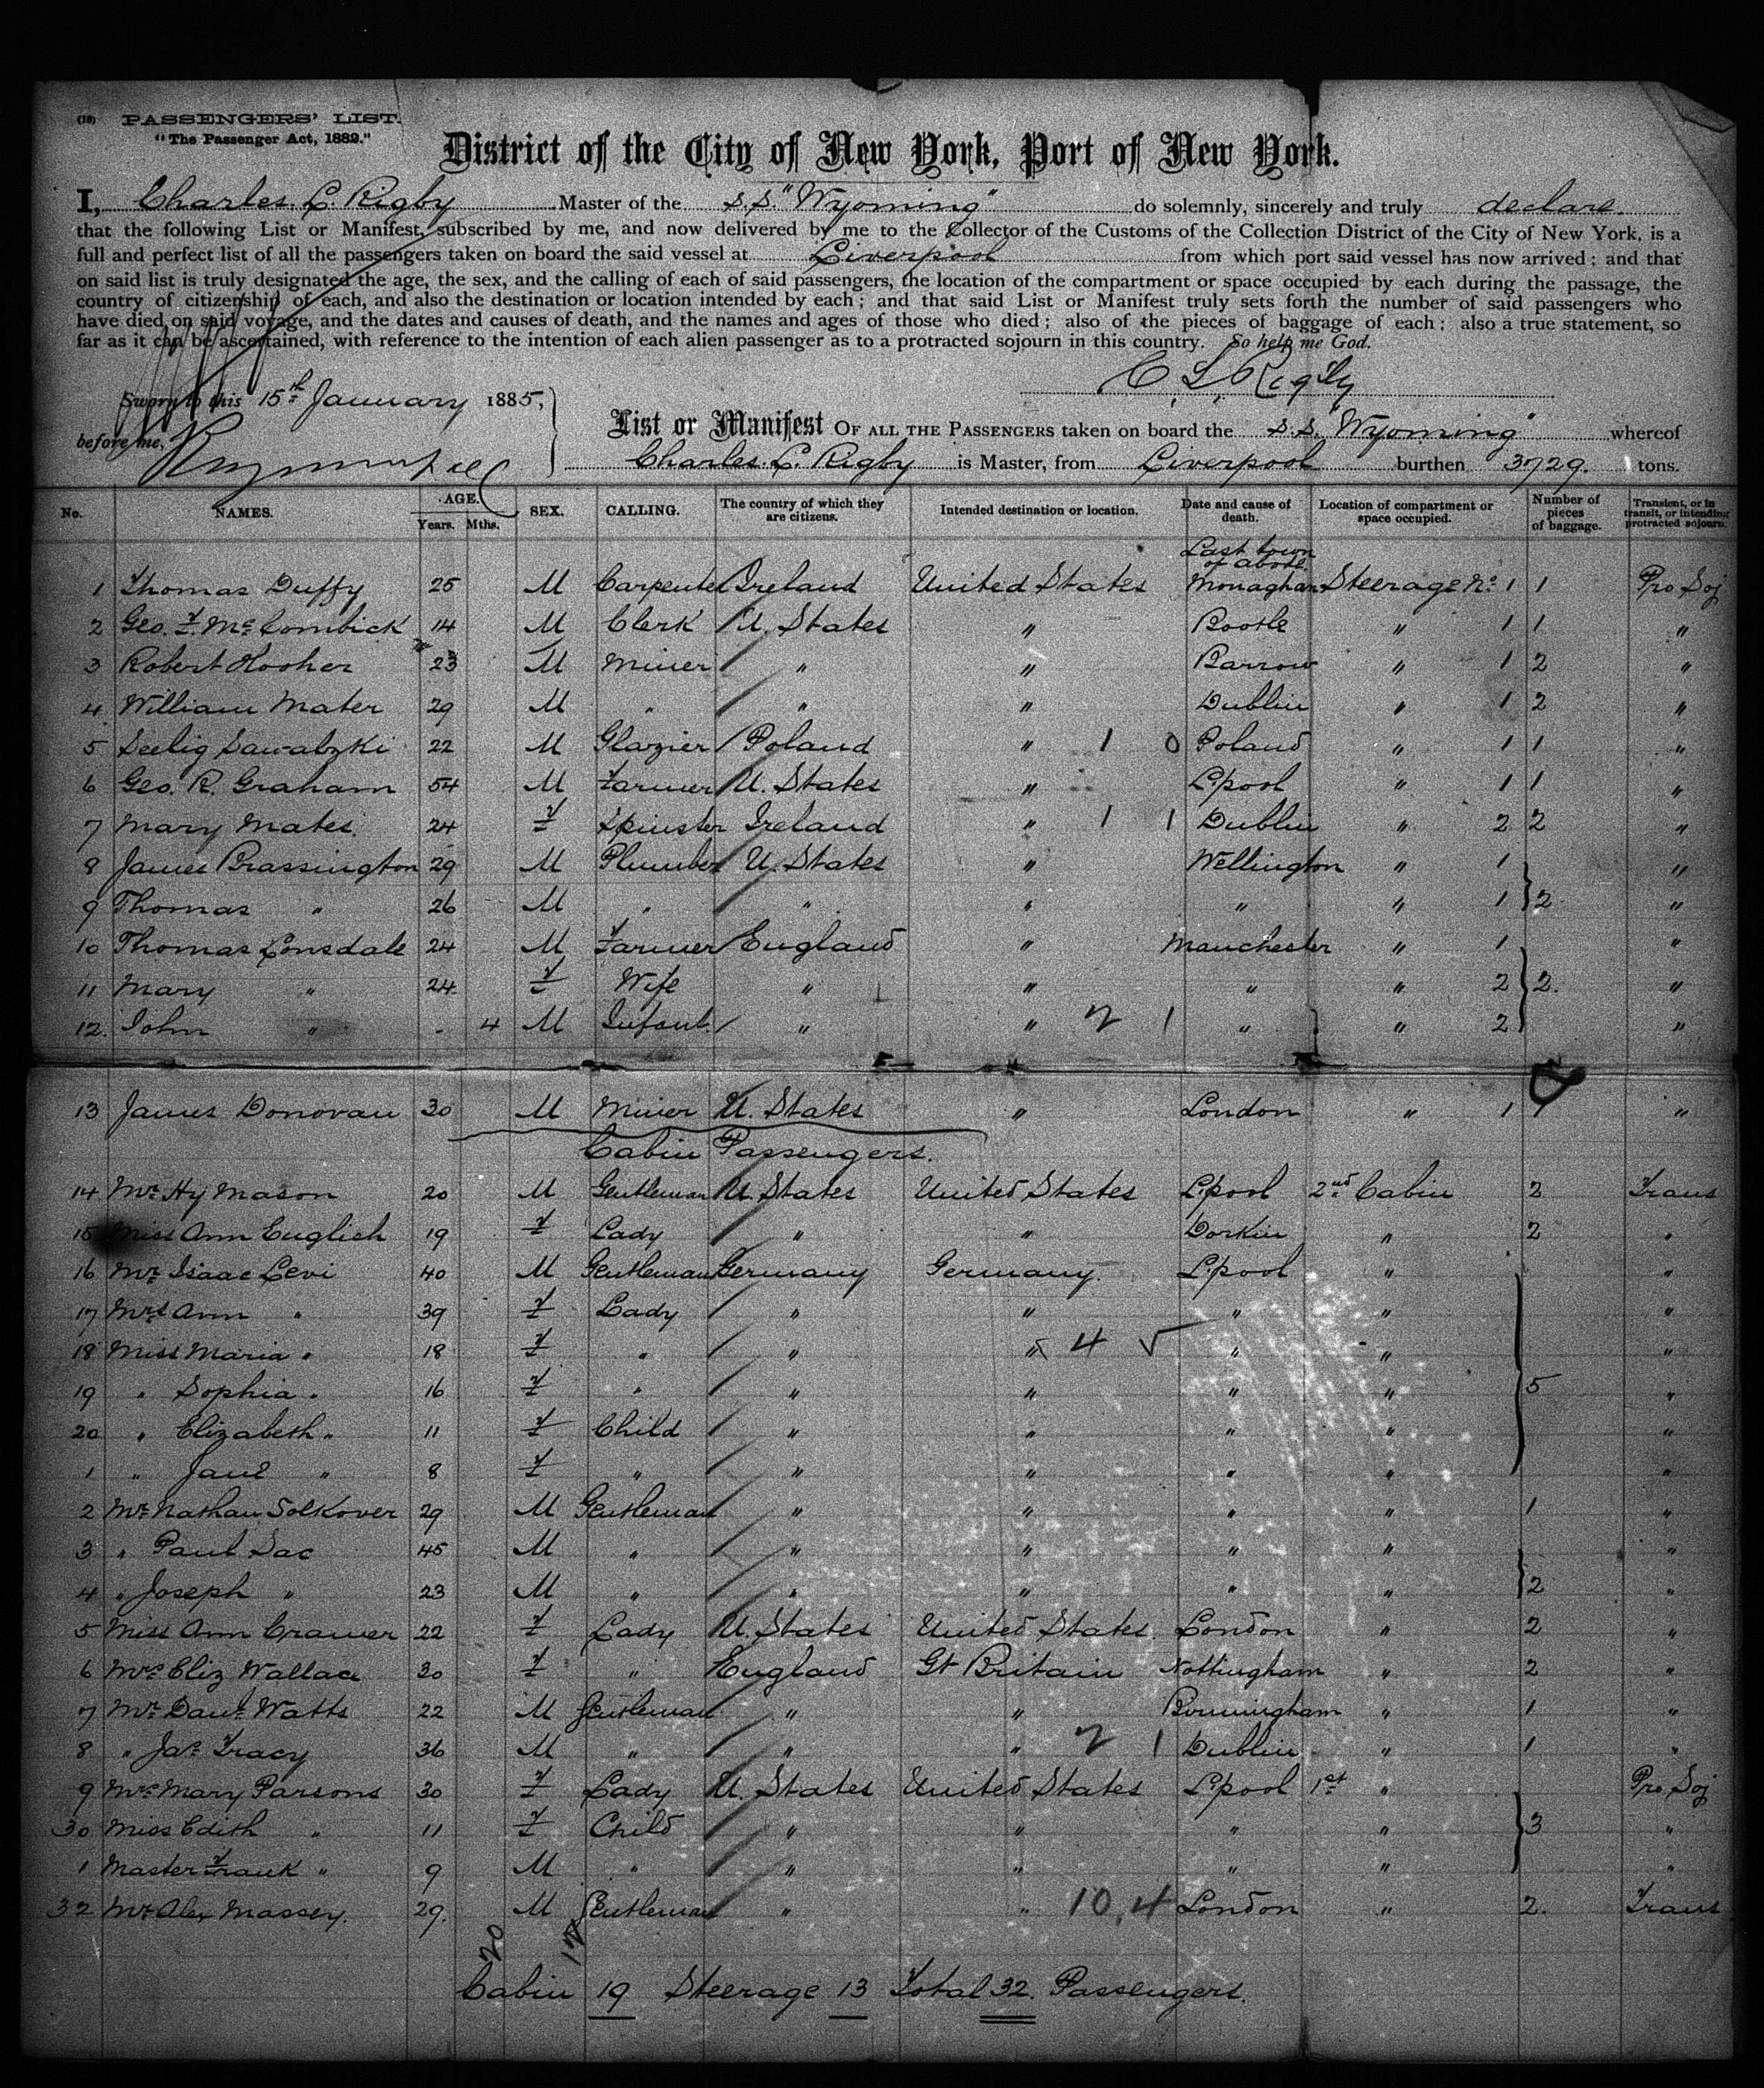 (18) PASSENGERS' LIST.
"The Passenger Act, 1882."
District of the City of New York, Port of New York.
I, Charles. L. Rigby Master of the S.S. "Wyoming" do solemnly, sincerely and truly declare.
that the following List or Manifest, subscribed by me, and now delivered by me to the Collector of the Customs of the Collection District of the City of New York, is a
full and perfect list of all the passengers taken on board the said vessel at Liverpool from which port said vessel has now arrived; and that
on said list is truly designated the age, the sex, and the calling of each of said passengers, the location of the compartment or space occupied by each during the passage, the
country of citizenship of each, and also the destination or location intended by each; and that said List or Manifest truly sets forth the number of said passengers who
have died on said voyage, and the dates and causes of death, and the names and ages of those who died; also of the pieces of baggage of each; also a true statement, so
far as it can be ascertained, with reference to the intention of each alien passenger as to a protracted sojourn in this country. So help me God.
C. L. Rigby
Sworn to this 15th January 1885,
before me,
List or Manifest OF ALL THE PASSENGERS taken on board the S.S. "Wyoming" whereof
Charles. L. Rigby is Master, from Liverpool burthen 3729. tons.
No. NAMES. AGE. Years. Mths. SEX. CALLING. The country of which they are citizens. Intended destination or location. Date and cause of death. Location of compartment or space occupied. Number of pieces of baggage. Transient, or in transit, or intending protracted sojourn.
Last town of abode.
1 Thomas Duffy 25 M Carpenter Ireland United States Monaghan Steerage No. 1 1 Pro Soj
2 Geo. F. McCombick 14 M Clerk U. States " Bootle " 1 1 "
3 Robert Hooher 23 M Miner " " Barrow " 1 2 "
4 William Mater 29 M " " " Dublin " 1 2 "
5 Seelig Sawatzki 22 M Glazier Poland " 1 0 Poland " 1 1 "
6 Geo. R. Graham 54 M Farmer U. States " L.pool " 1 1 "
7 Mary Mates. 24 F Spinster Ireland " 1 1 Dublin " 2 2 "
8 James Brassington 29 M Plumber U. States " Wellington " 1 "
9 Thomas " 26 M " " " " " 1 2 "
10 Thomas Lonsdale 24 M Farmer England " Manchester " 1 "
11 Mary " 24 F Wife " " " " 2 2. "
12. John " - 4 M Infant. " " 2 1 " " 2 "
13 James Donovan 30 M Miner U. States " London " 1 1 "
Cabin Passengers.
14 Mr. Hy Mason 20 M Gentleman U. States United States L.pool 2nd Cabin 2 Trans
15 Miss Ann English 19 F Lady " " Dorkin " 2 "
16 Mr. Isaac Levi 40 M Gentleman Germany Germany. L.pool " "
17 Mrs Ann " 39 F Lady " " " " "
18 Miss Maria " 18 F " " " 4 √ " " "
19 " Sophia " 16 F " " " " " 5 "
20 " Elizabeth " 11 F Child " " " " "
1 " Jane " 8 F " " " " " "
2 Mr. Nathan Solkover 29 M Gentleman " " " " 1 "
3 " Paul Sac 45 M " " " " " "
4 " Joseph " 23 M " " " " " 2 "
5 Miss Ann Cramer 22 F Lady U. States United States. London " 2 "
6 Mrs. Eliz Wallace 30 F " England Gt Britain Nottingham " 2 "
7 Mr. Danl. Watts 22 M Gentleman " " Birmingham " 1 "
8 " Jas. Tracy 36 M " " " 2 1 Dublin " 1 "
9 Mrs. Mary Parsons 30 F Lady U. States United States L.pool 1st " Pro Soj
30 Miss Edith " 11 F Child " " " " 3 "
1 Master Frank " 9 M " " " " " "
32 Mr. Alex Massey. 29. M Gentleman " " 10,4 London " 2. Trans
20 12
Cabin 19 Steerage 13 Total 32. Passengers.